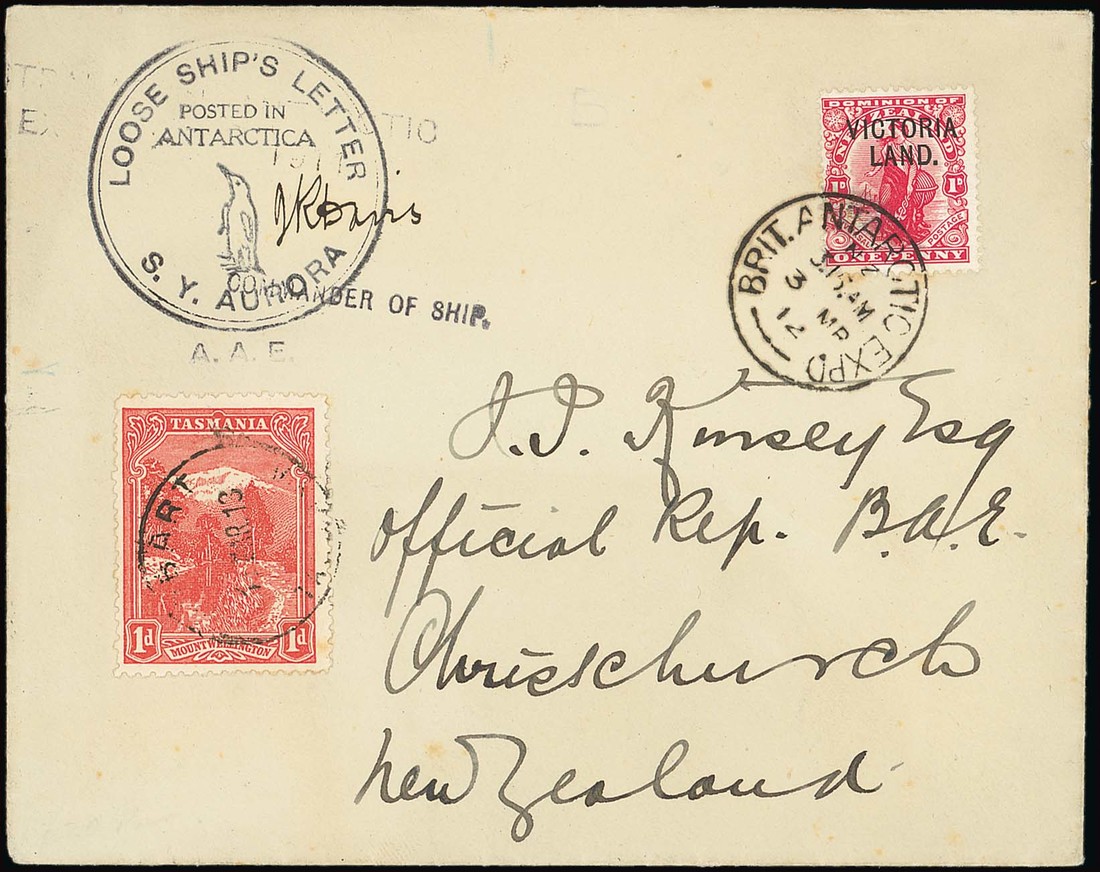 LOOSE SHIP'S LETTER
POSTED IN
ANTARCTICA
J K Davis
S. Y. AURORA
COMMANDER OF SHIP.
A. A. E.
DOMINION OF
NEW ZEALAND
VICTORIA
LAND.
1D 1D
POSTAGE
ONE PENNY
BRIT. ANTARCTIC EXPD
MR
12
TASMANIA
1d 1d
MOUNT WELLINGTON
J. J. Kinsey Esq
Official Rep. B.A.E.
Christchurch
New Zealand